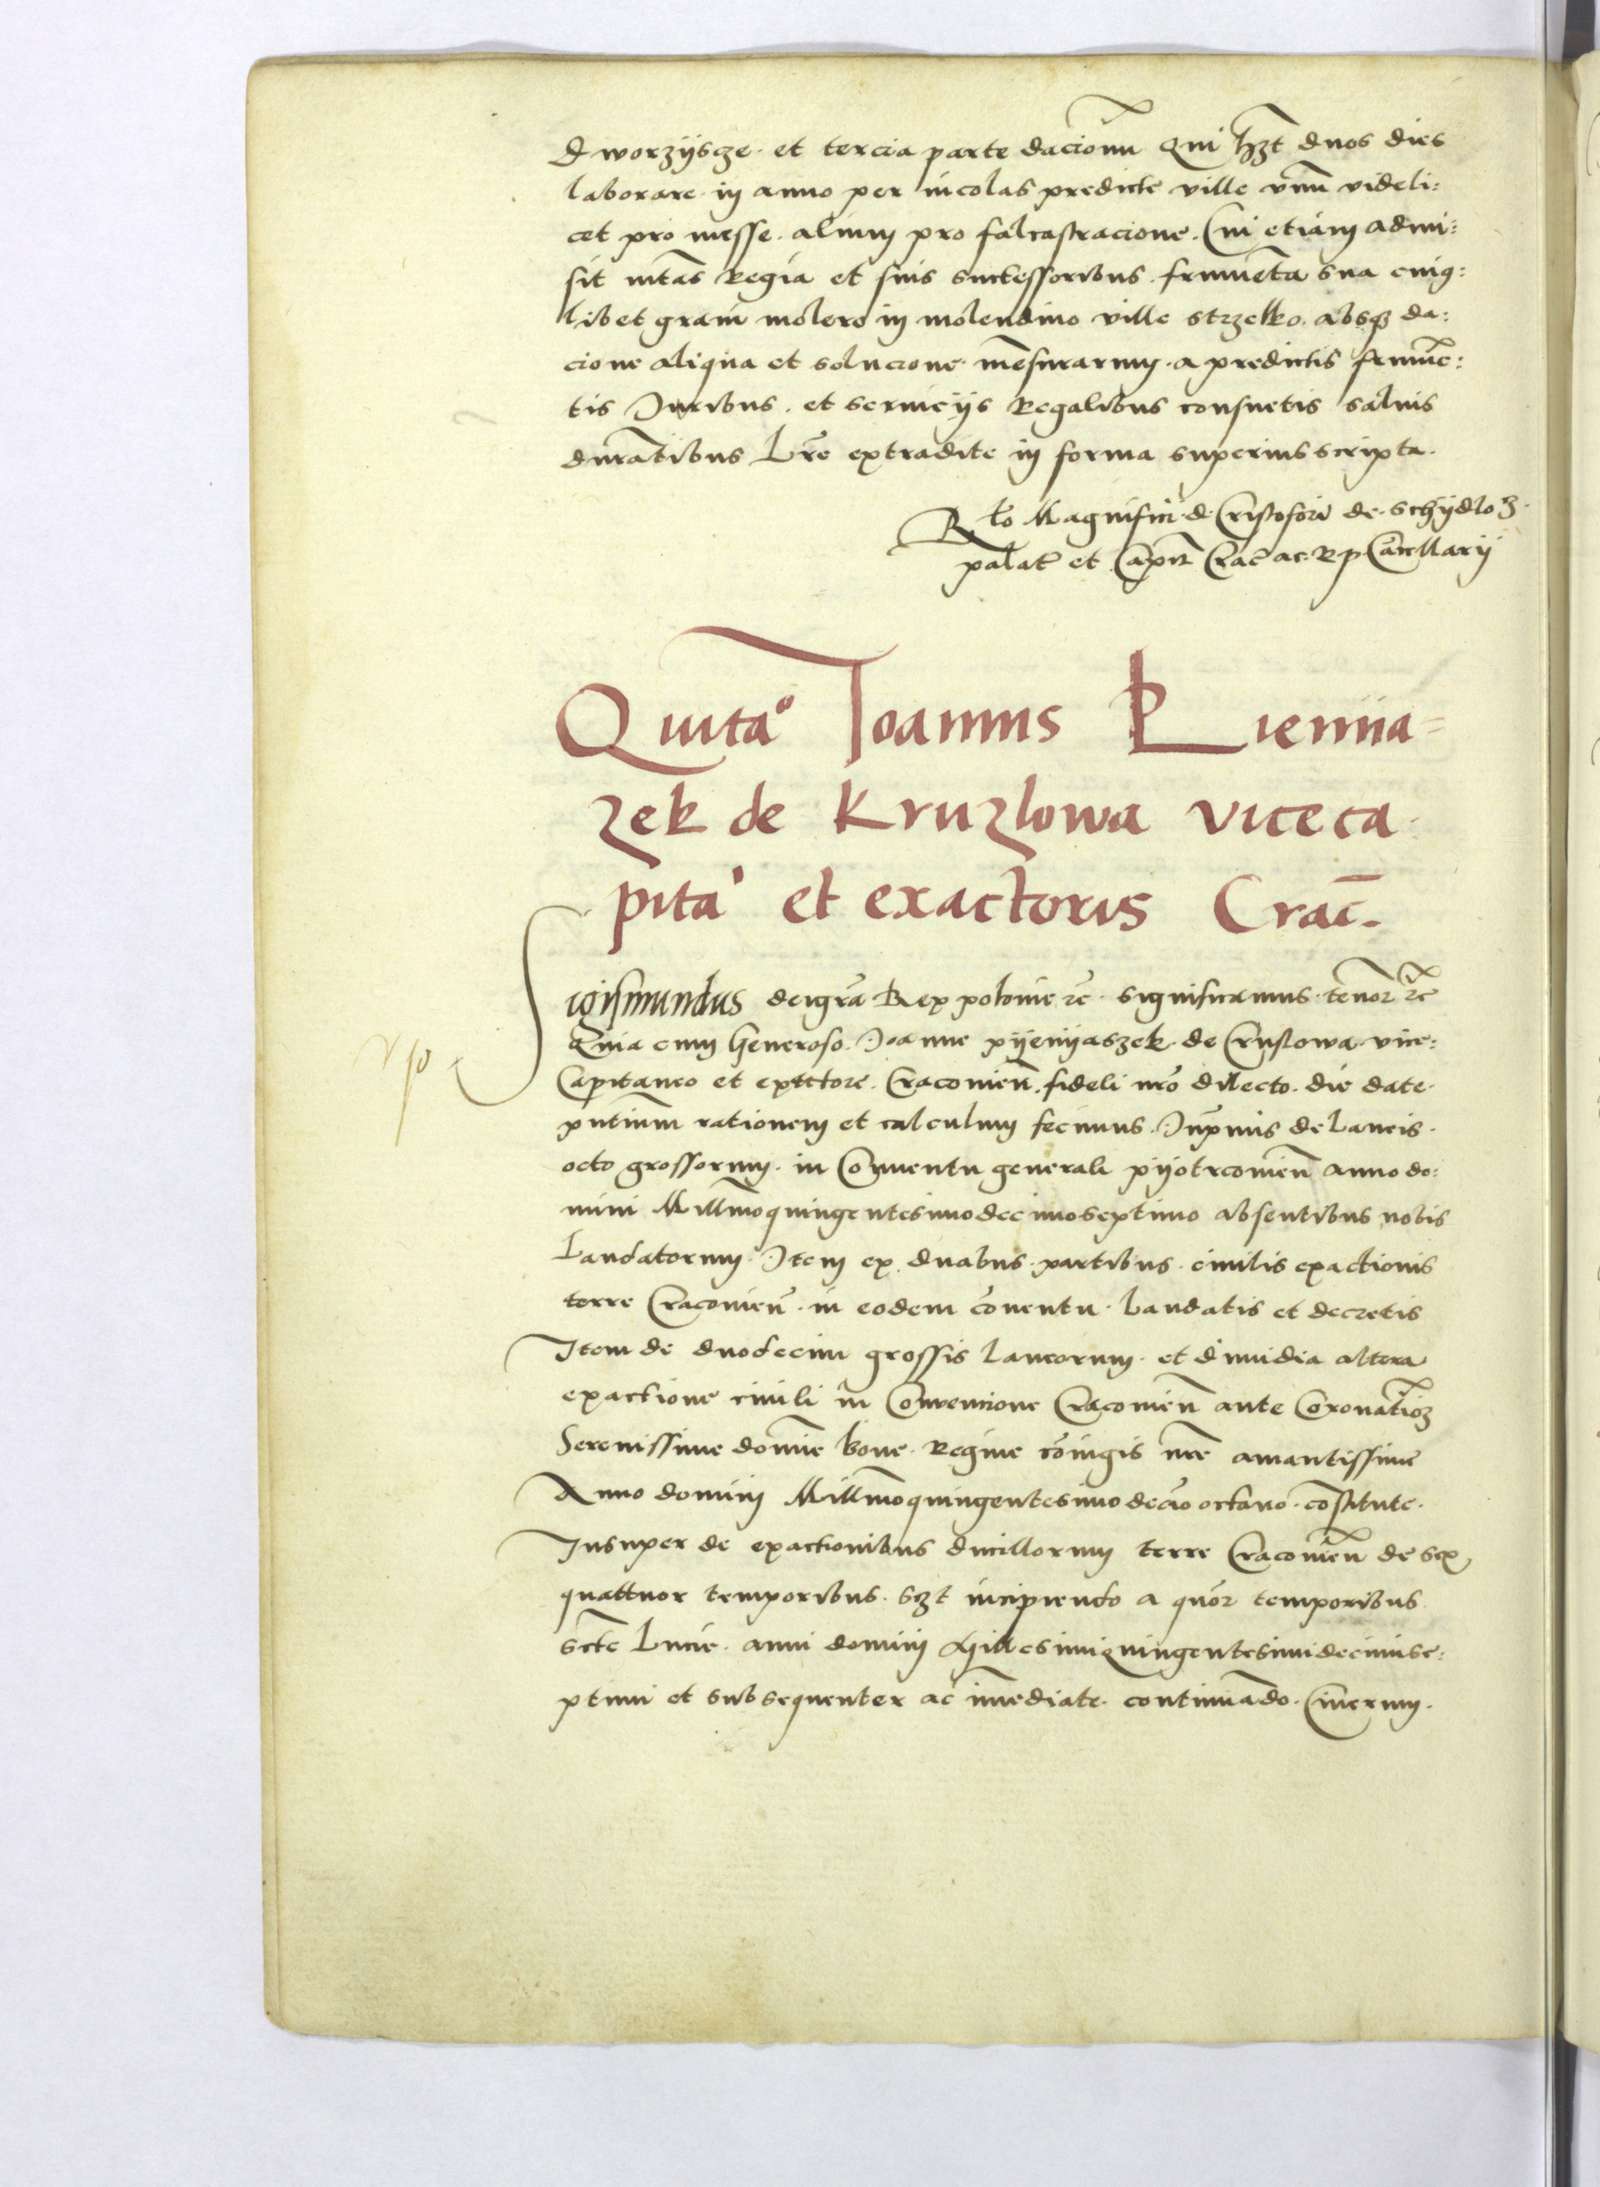 Dworzijscze. et tercia parte dacionũ Qui hꝫt duos dies
laborare in anno per incolas predicte ville vnũ videli:
cet pro messe. alium pro falcastracione. Cui etiam admi:
sit mtãs Regia et suis successoribus frumẽta sua cuiq:
libet granũ molere in molendino ville strzelko. absqꝫ da:
cione aliqua et solucione mẽsurarum. a predictis frumẽ:
tis Juribus. et seruicijs Regalibus consuetis saluis
durãtibus Lrẽ extradite in forma superius scripta.
Rlo Magnifici. d. Cristofori de. schijdlo
palat̃ et Capit̃ Crac̃ ac. R p Cãcellarij
Quita° Joannis Pienia=
zek de Kruzlowa viceca
pita' et exactoris Crac̃.
Sigismundus dei gr̃a Rex polonie ꝛc̃. significamus. tenor ꝛc̃
Quia cum Generoso. Joanne pijenijaszek. de Cruslowa. vice:
Capitaneo et exactore. Cracouieñ. fideli nr̃o dilecto. die date.
pñtium rationem et calculum fecimus. Inp̃mis de Laneis.
octo grossorum. in Conuentu generali pijotrcouieñ anno do:
mini Millmoquingentesimodecimoseptimo absentibus nobis
Laudatorum. Item ex duabus. partibus. ciuilis exactionis
terre Cracouieñ. in eodem cõuentu. Laudatis et decretis
Item de duodecim grossis Laneorum. et dimidia altera
exactione ciuili in Conuencione Cracouieñ ante Coronatioꝫ
Serenissime domĩe bone. Regine cõiugis nr̃e amantissime
Anno domini Millmoquingentesimo decĩo octauo. cõstitute.
Insuper de exactionibus ducillorum terre Cracouieñ de sex
quattuor temporibus. sꝫt incipiendo a quor temporibus
sctẽ Lucie. anni domini Millesimiquingentesimidecimise:
ptimi et subsequenter ac imediate. continuãdo. Cinerum.